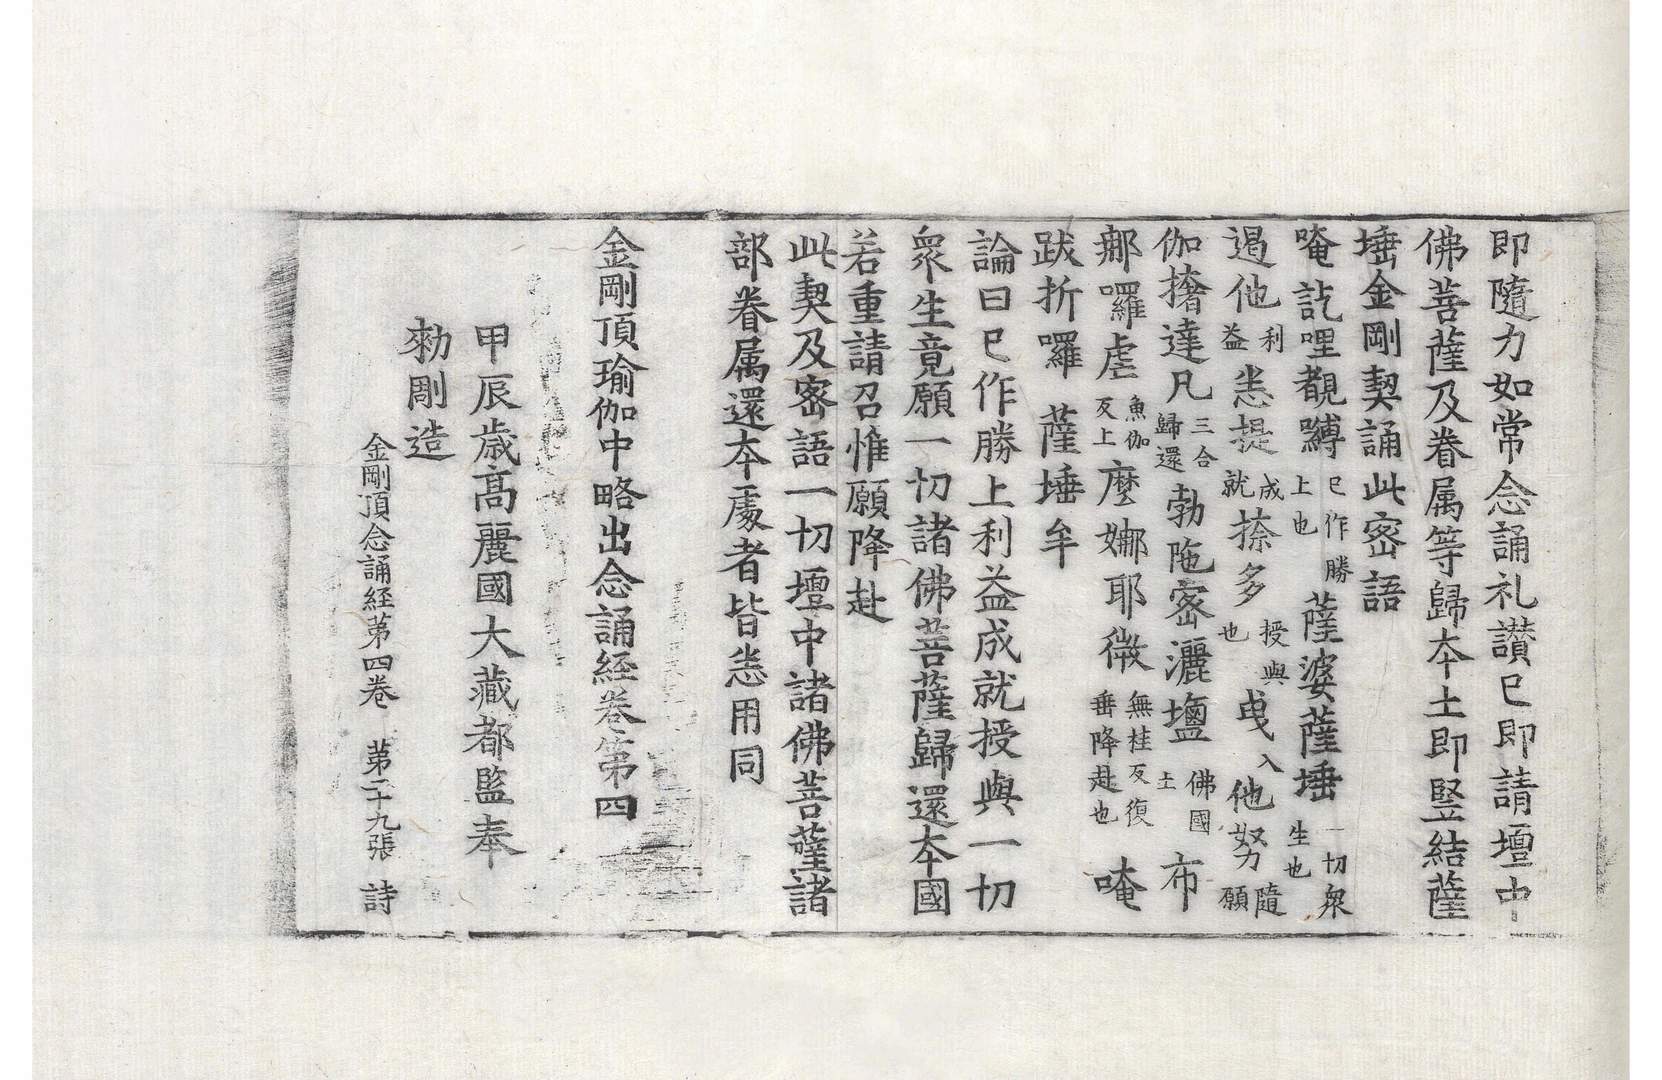 即隨力如常念誦礼讃已即請壇中
佛菩薩及眷属等歸夲土即竪結薩
埵金剛契誦此密語
唵訖哩覩嚩已作勝上也薩婆薩埵一切衆生也
遏他利益悉提成就捺多授與也曳入他努隨願
伽撦達凡三合歸還勃陁密灑壃佛國土布
那囉虐魚伽反上麼娜耶微無桂反復垂降赴也唵
跋折囉 薩埵牟
論曰已作勝上利益成就授與一切
衆生竟願一切諸佛菩薩歸還夲國
若重請召惟願降赴
此契及密語一切壇中諸佛菩薩諸
部眷属還夲處者皆悉用同
金剛頂瑜伽中略出念誦経卷第四
甲辰歳髙麗國大藏都監奉
勑剛造
金剛頂念誦経第四卷 第二十九張 詩